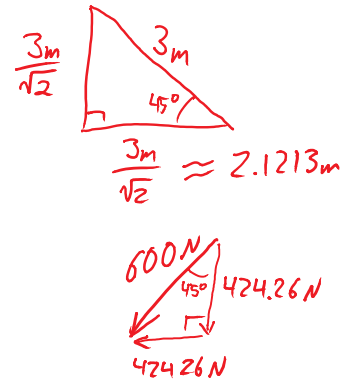 3m
3m
√2
45°
3m
√2
≈ 2.1213m
600N
45°
424.26N
42426N